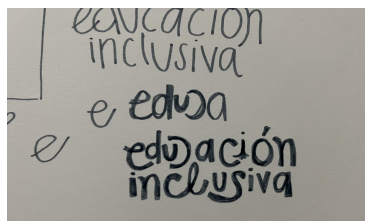 educación
inclusiva
e edusa
e educación
inclusiva